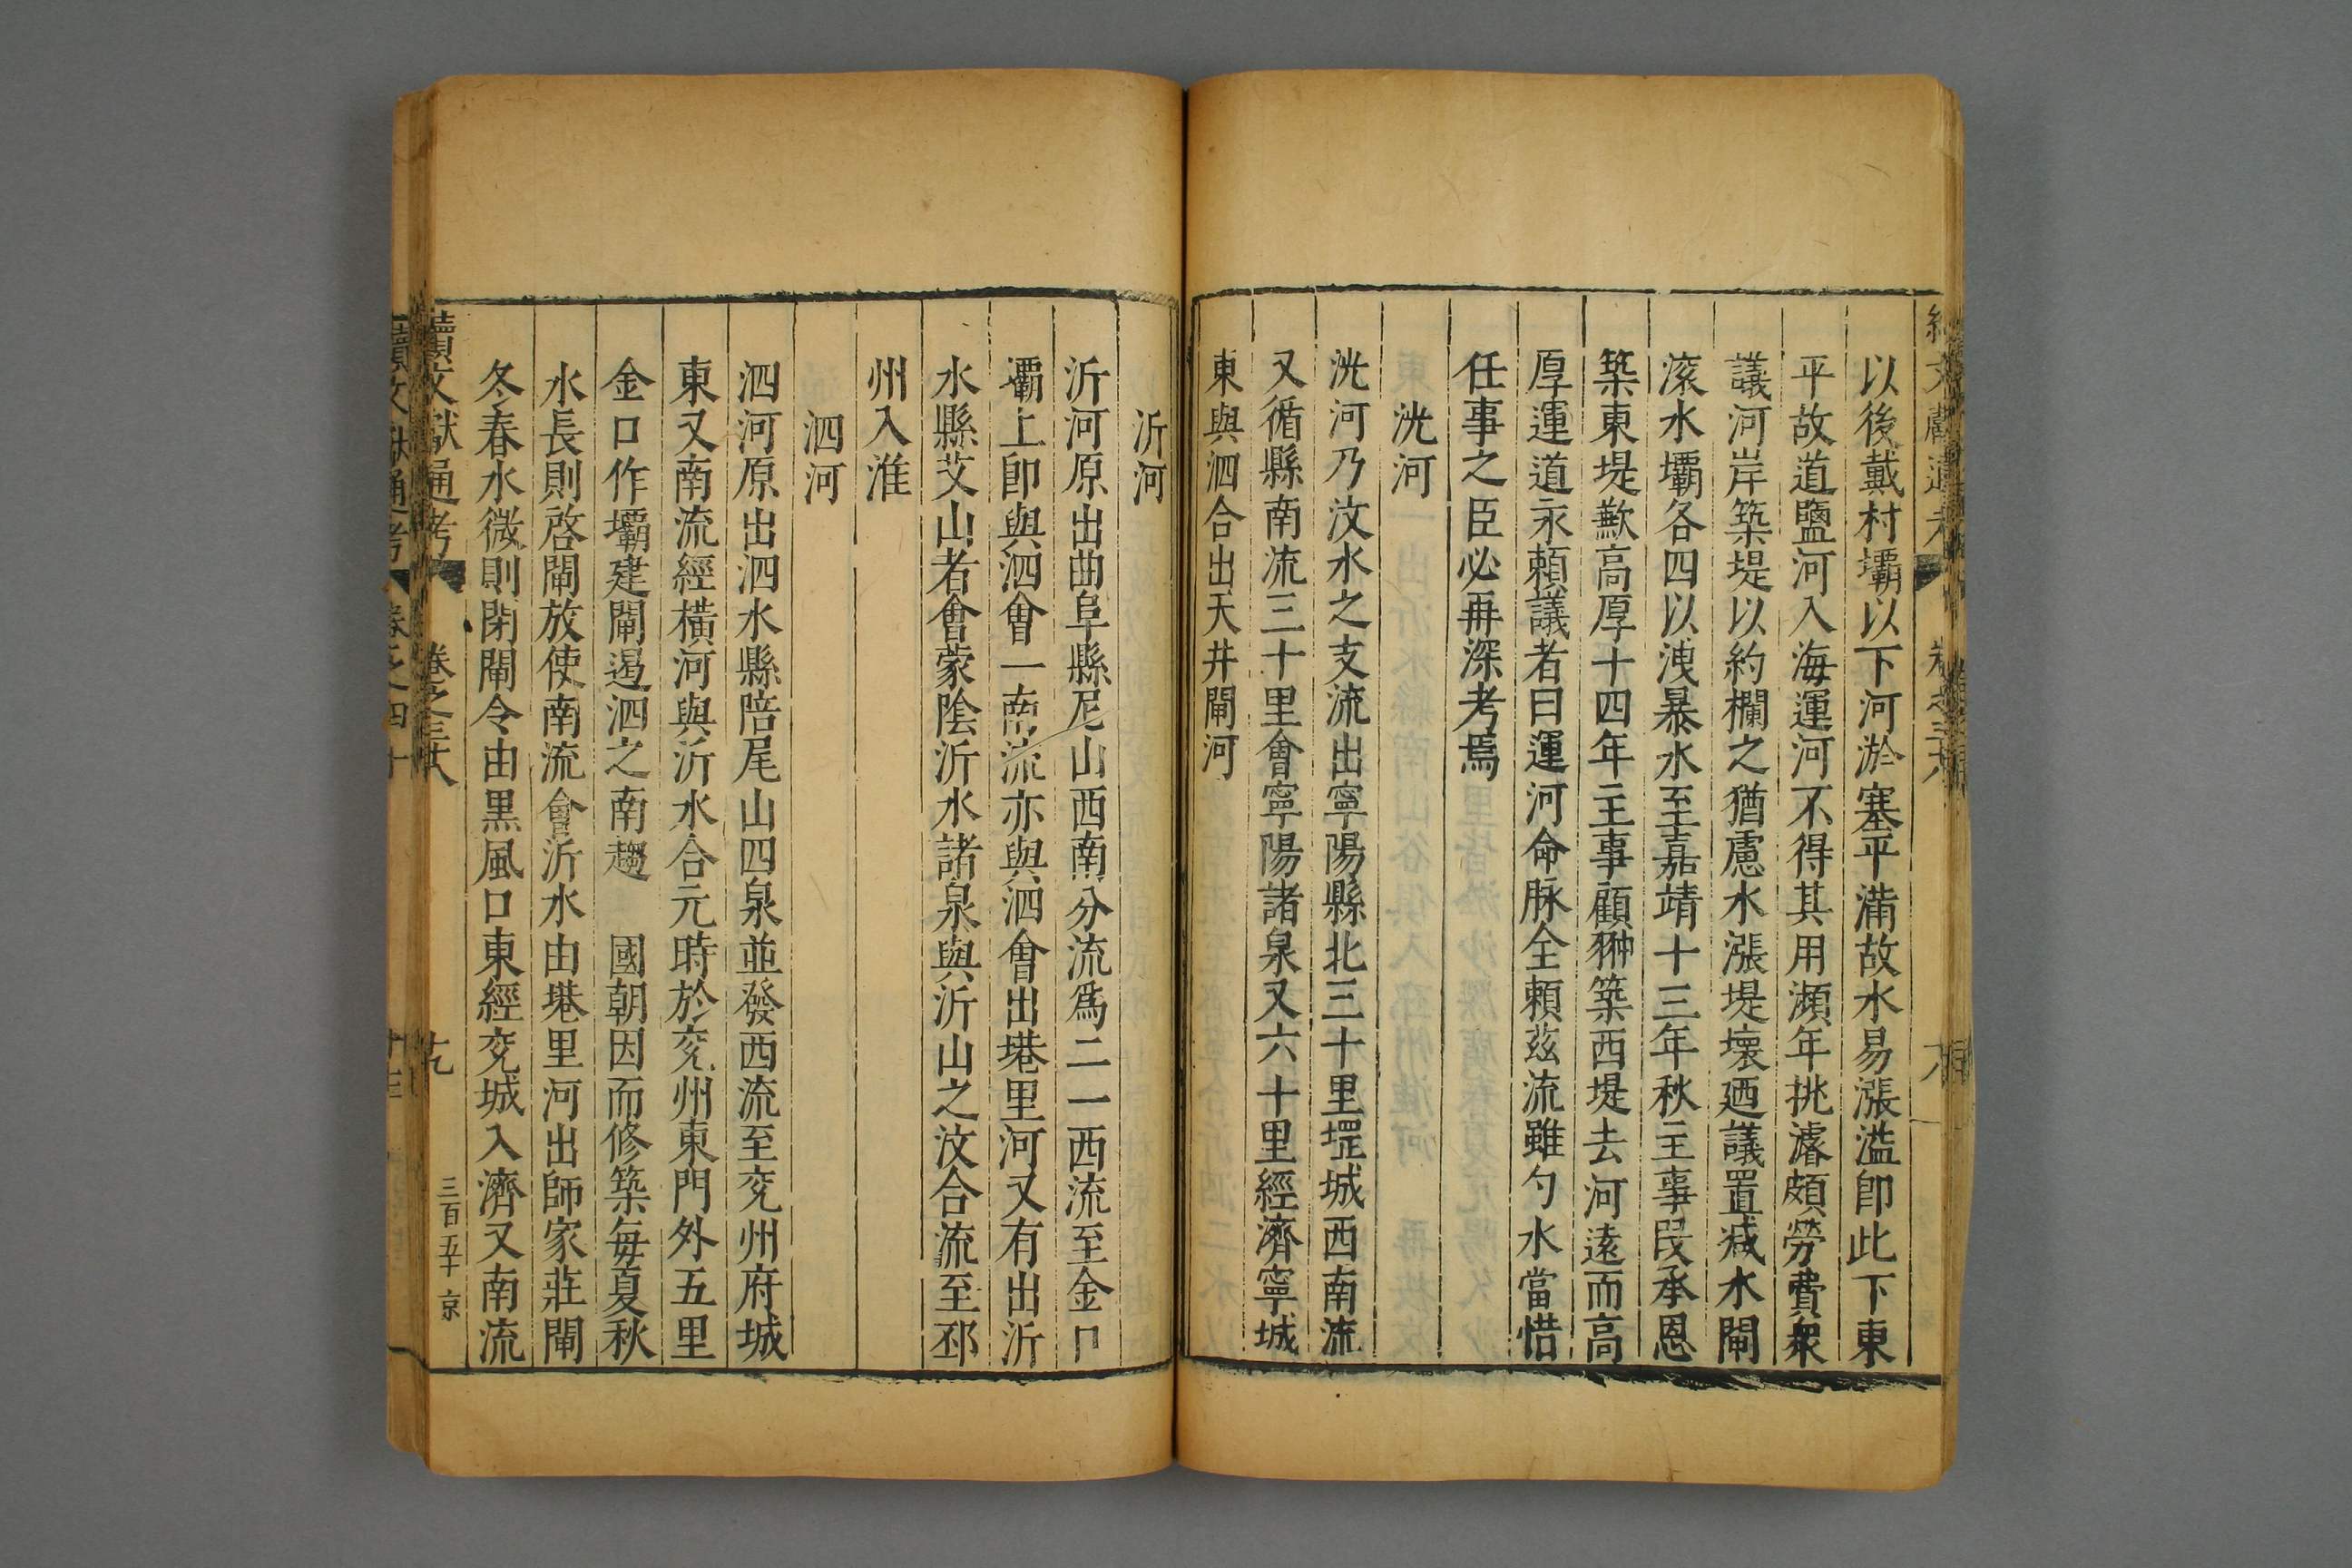 以後戴村壩以下河淤塞平滿故水易漲濫卽此下東
平故道鹽河入海運河不得其用瀕年挑濬頗勞費衆
議河岸築堤以約欄之猶慮水漲堤壞廼議置减水閘
滚水壩各四以洩暴水至嘉靖十三年秋主事段承恩
築東堤歉高厚十四年主事顧翀築西堤去河遠而高
厚運道永賴議者曰運河命脉全賴茲流雖勺水當惜
任事之臣必再深考焉
洸河
洸河乃汶水之支流出寧陽縣北三十里堽城西南流
又循縣南流三十里會寧陽諸泉又六十里經濟寧城
東與泗合出天井閘河
沂河
沂河原出曲阜縣尼山西南分流爲二一西流至金口
壩上卽與泗會一南流亦與泗會出塂里河又有出沂
水縣艾山者會蒙陰沂水諸泉與沂山之汶合流至邳
州入淮
泗河
泗河原出泗水縣陪尾山四泉並發西流至兗州府城
東又南流經橫河與沂水合元時於兗州東門外五里
金口作壩建閘遏泗之南趨 國朝因而修築每夏秋
水長則啓閘放使南流會沂水由塂里河出師家莊閘
冬春水微則閉閘令由黑風口東經兗城入濟又南流
續文獻通考 卷之三十八 十九 三百五十 京